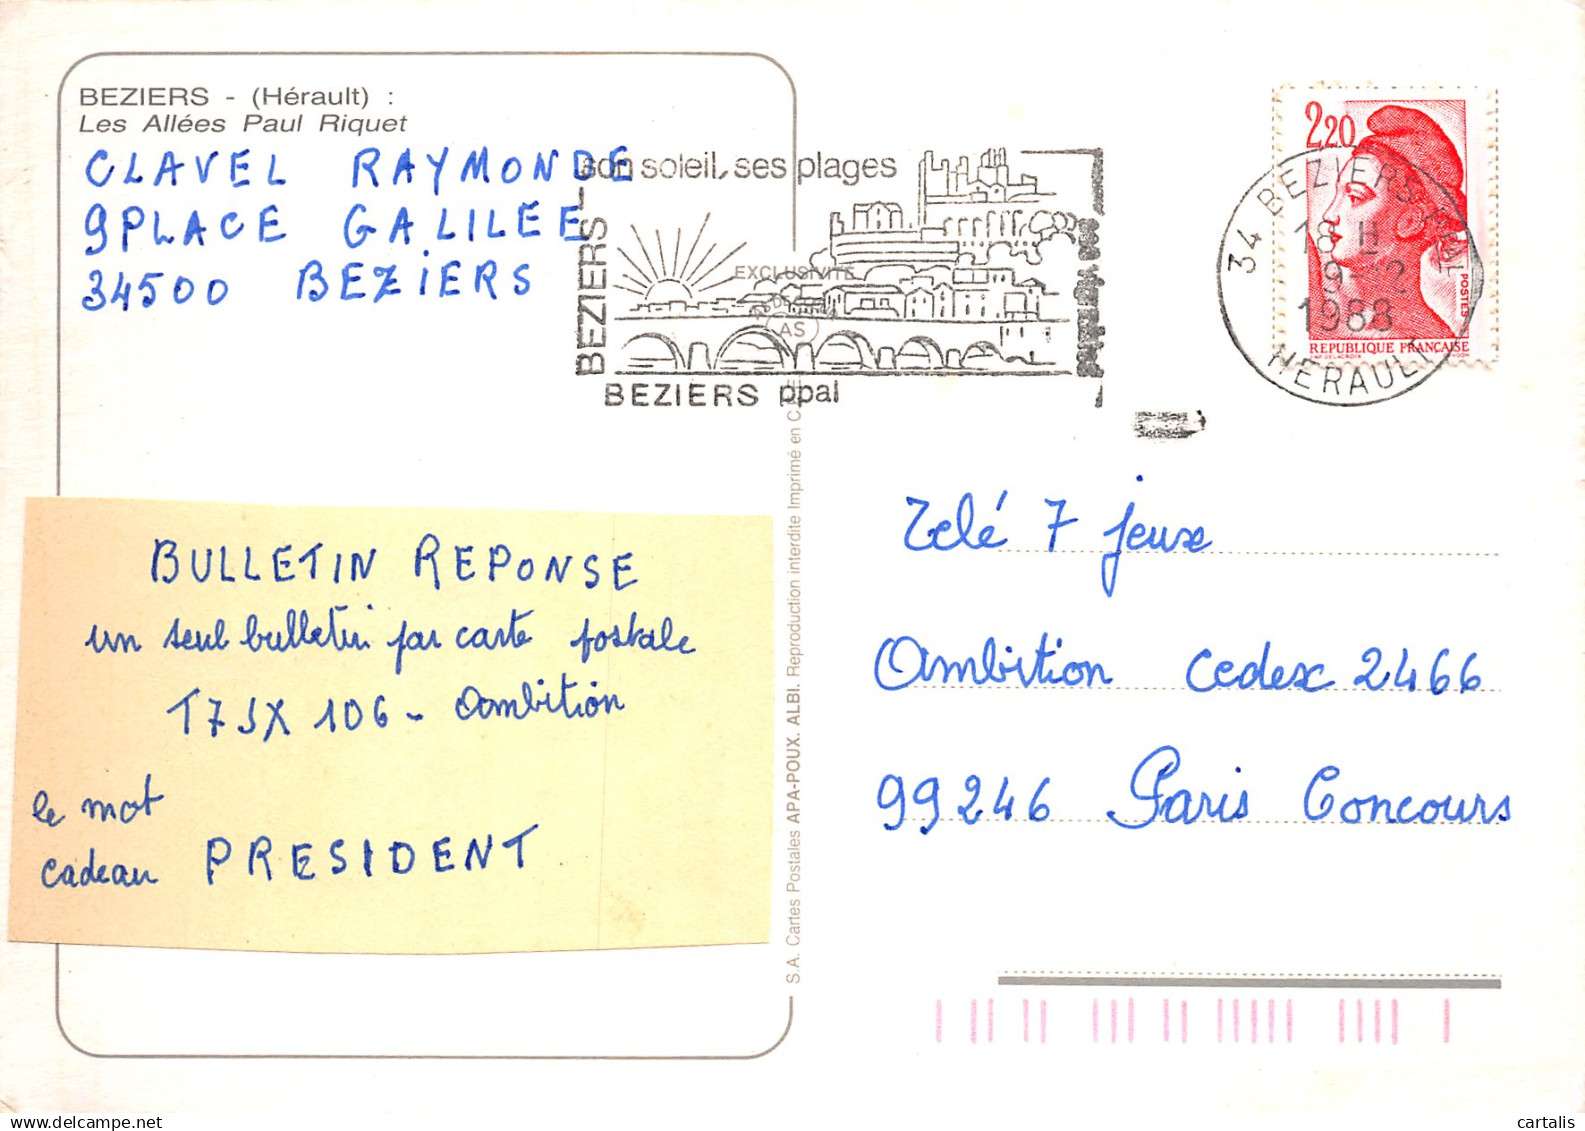 BEZIERS - (Hérault) :
Les Allées Paul Riquet
CLAVEL RAYMONDE
9 PLACE GALILÉE
34500 BEZIERS
BEZIERS -
son soleil, ses plages
BEZIERS ppal
EXCLUSIVITÉ
DE
AS
2,20
POSTES
REPUBLIQUE FRANÇAISE
34 BEZIERS PPAL
18 H
1988
HERAULT
BULLETIN REPONSE
un seul bulletin par carte postale
T7JX 106 - Ambition
le mot
cadeau PRESIDENT
S.A. Cartes Postales APA-POUX. ALBI. Reproduction interdite Imprimé en C.E.E.
Télé 7 jeux
Ambition Cedex 2466
99246 Paris Concours
cartalis